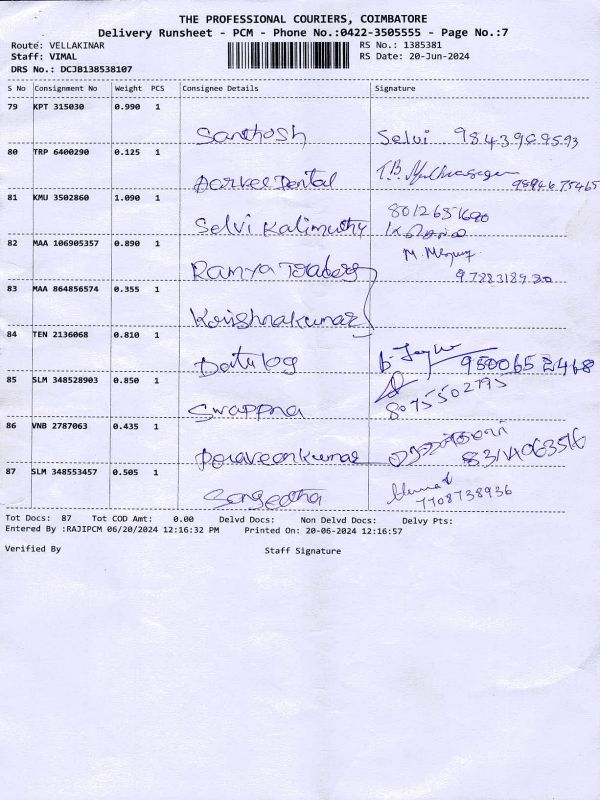 THE PROFESSIONAL COURIERS, COIMBATORE
Delivery Runsheet - PCM - Phone No.:0422-3505555 - Page No.:7
Route: VELLAKINAR RS No.: 1385381
Staff: VIMAL RS Date: 20-Jun-2024
DRS No.: DCJB138538107
S No Consignment No Weight PCS Consignee Details Signature
79 KPT 315030 0.990 1
Santhosh Selvi
80 TRP 6400290 0.125 1
Dental
81 KMU 3502860 1.090 1
Selvi Kalimuthy 8012651680
82 MAA 106905357 0.890 1
Ramya Traders
83 MAA 864856574 0.355 1
Krishnakumar
84 TEN 2136068 0.810 1
Datulog 9500652468
85 SLM 348528903 0.850 1
Swappna 8075502795
86 VNB 2787063 0.435 1
Praveenkumar
87 SLM 348553457 0.505 1
Sangeetha 7708738936
Tot Docs: 87 Tot COD Amt: 0.00 Delvd Docs: Non Delvd Docs: Delvy Pts:
Entered By :RAJIPCM 06/20/2024 12:16:32 PM Printed On: 20-06-2024 12:16:57
Verified By Staff Signature